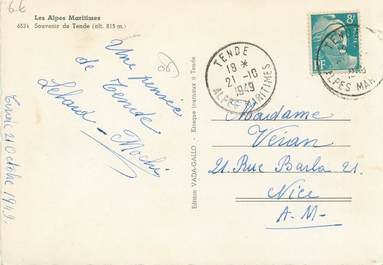 6 €
Les Alpes Maritimes
6524 Souvenir de Tende (alt. 815 m.)
Une pensée
de Tende
Mochi
Tende 21 Octobre 1949
Edition VADA-GALLO - Kiosque journaux à Tende
TENDE
18 *
21-10
1949
ALPES MARITIMES
8F
RF
TENDE
ALPES MAR
Madame
Véran
21. Rue Barla 21
Nice
A. M-